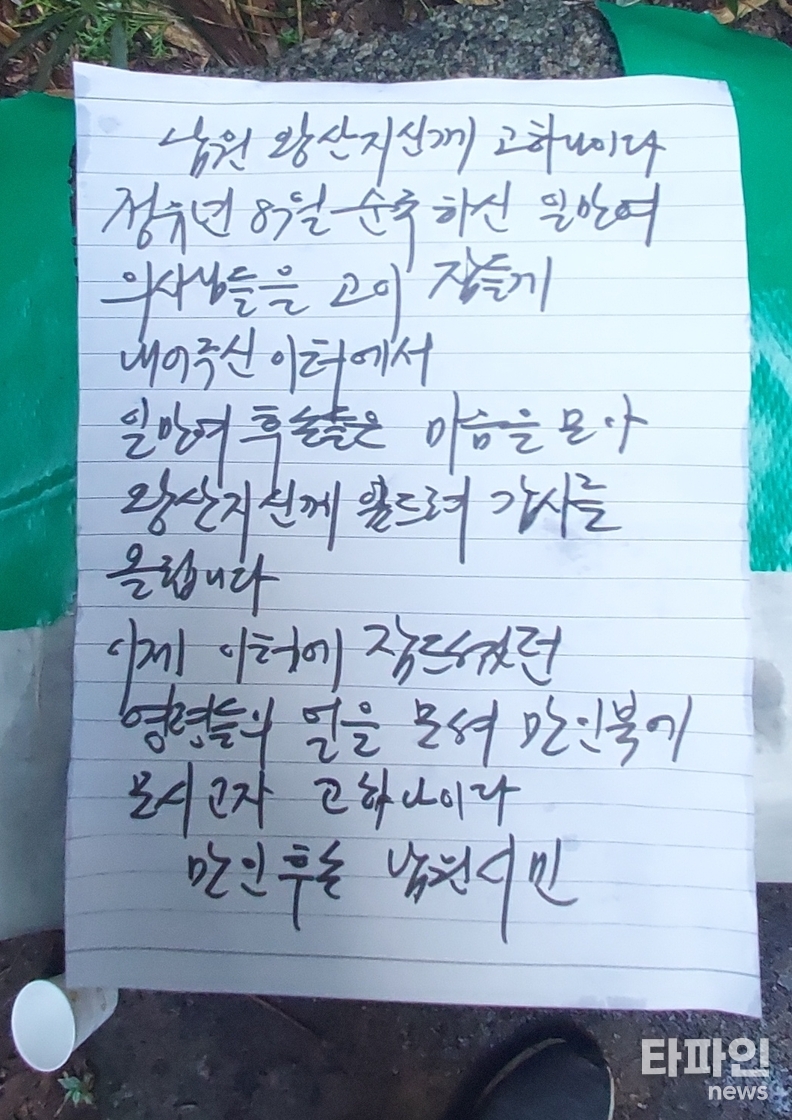 남원 왕산지신께 고하나이다
정유년 8월 순국 하신 일만여
의사님들을 고이 잠들게
내어주신 이터에서
일만여 후손들은 마음을 모아
왕산지신께 엎드려 감사를
올립니다
이제 이터에 잠드셨던
영령들의 얼을 모셔 만인북에
모시고자 고하나이다
만인후손 남원시민
타파인
news